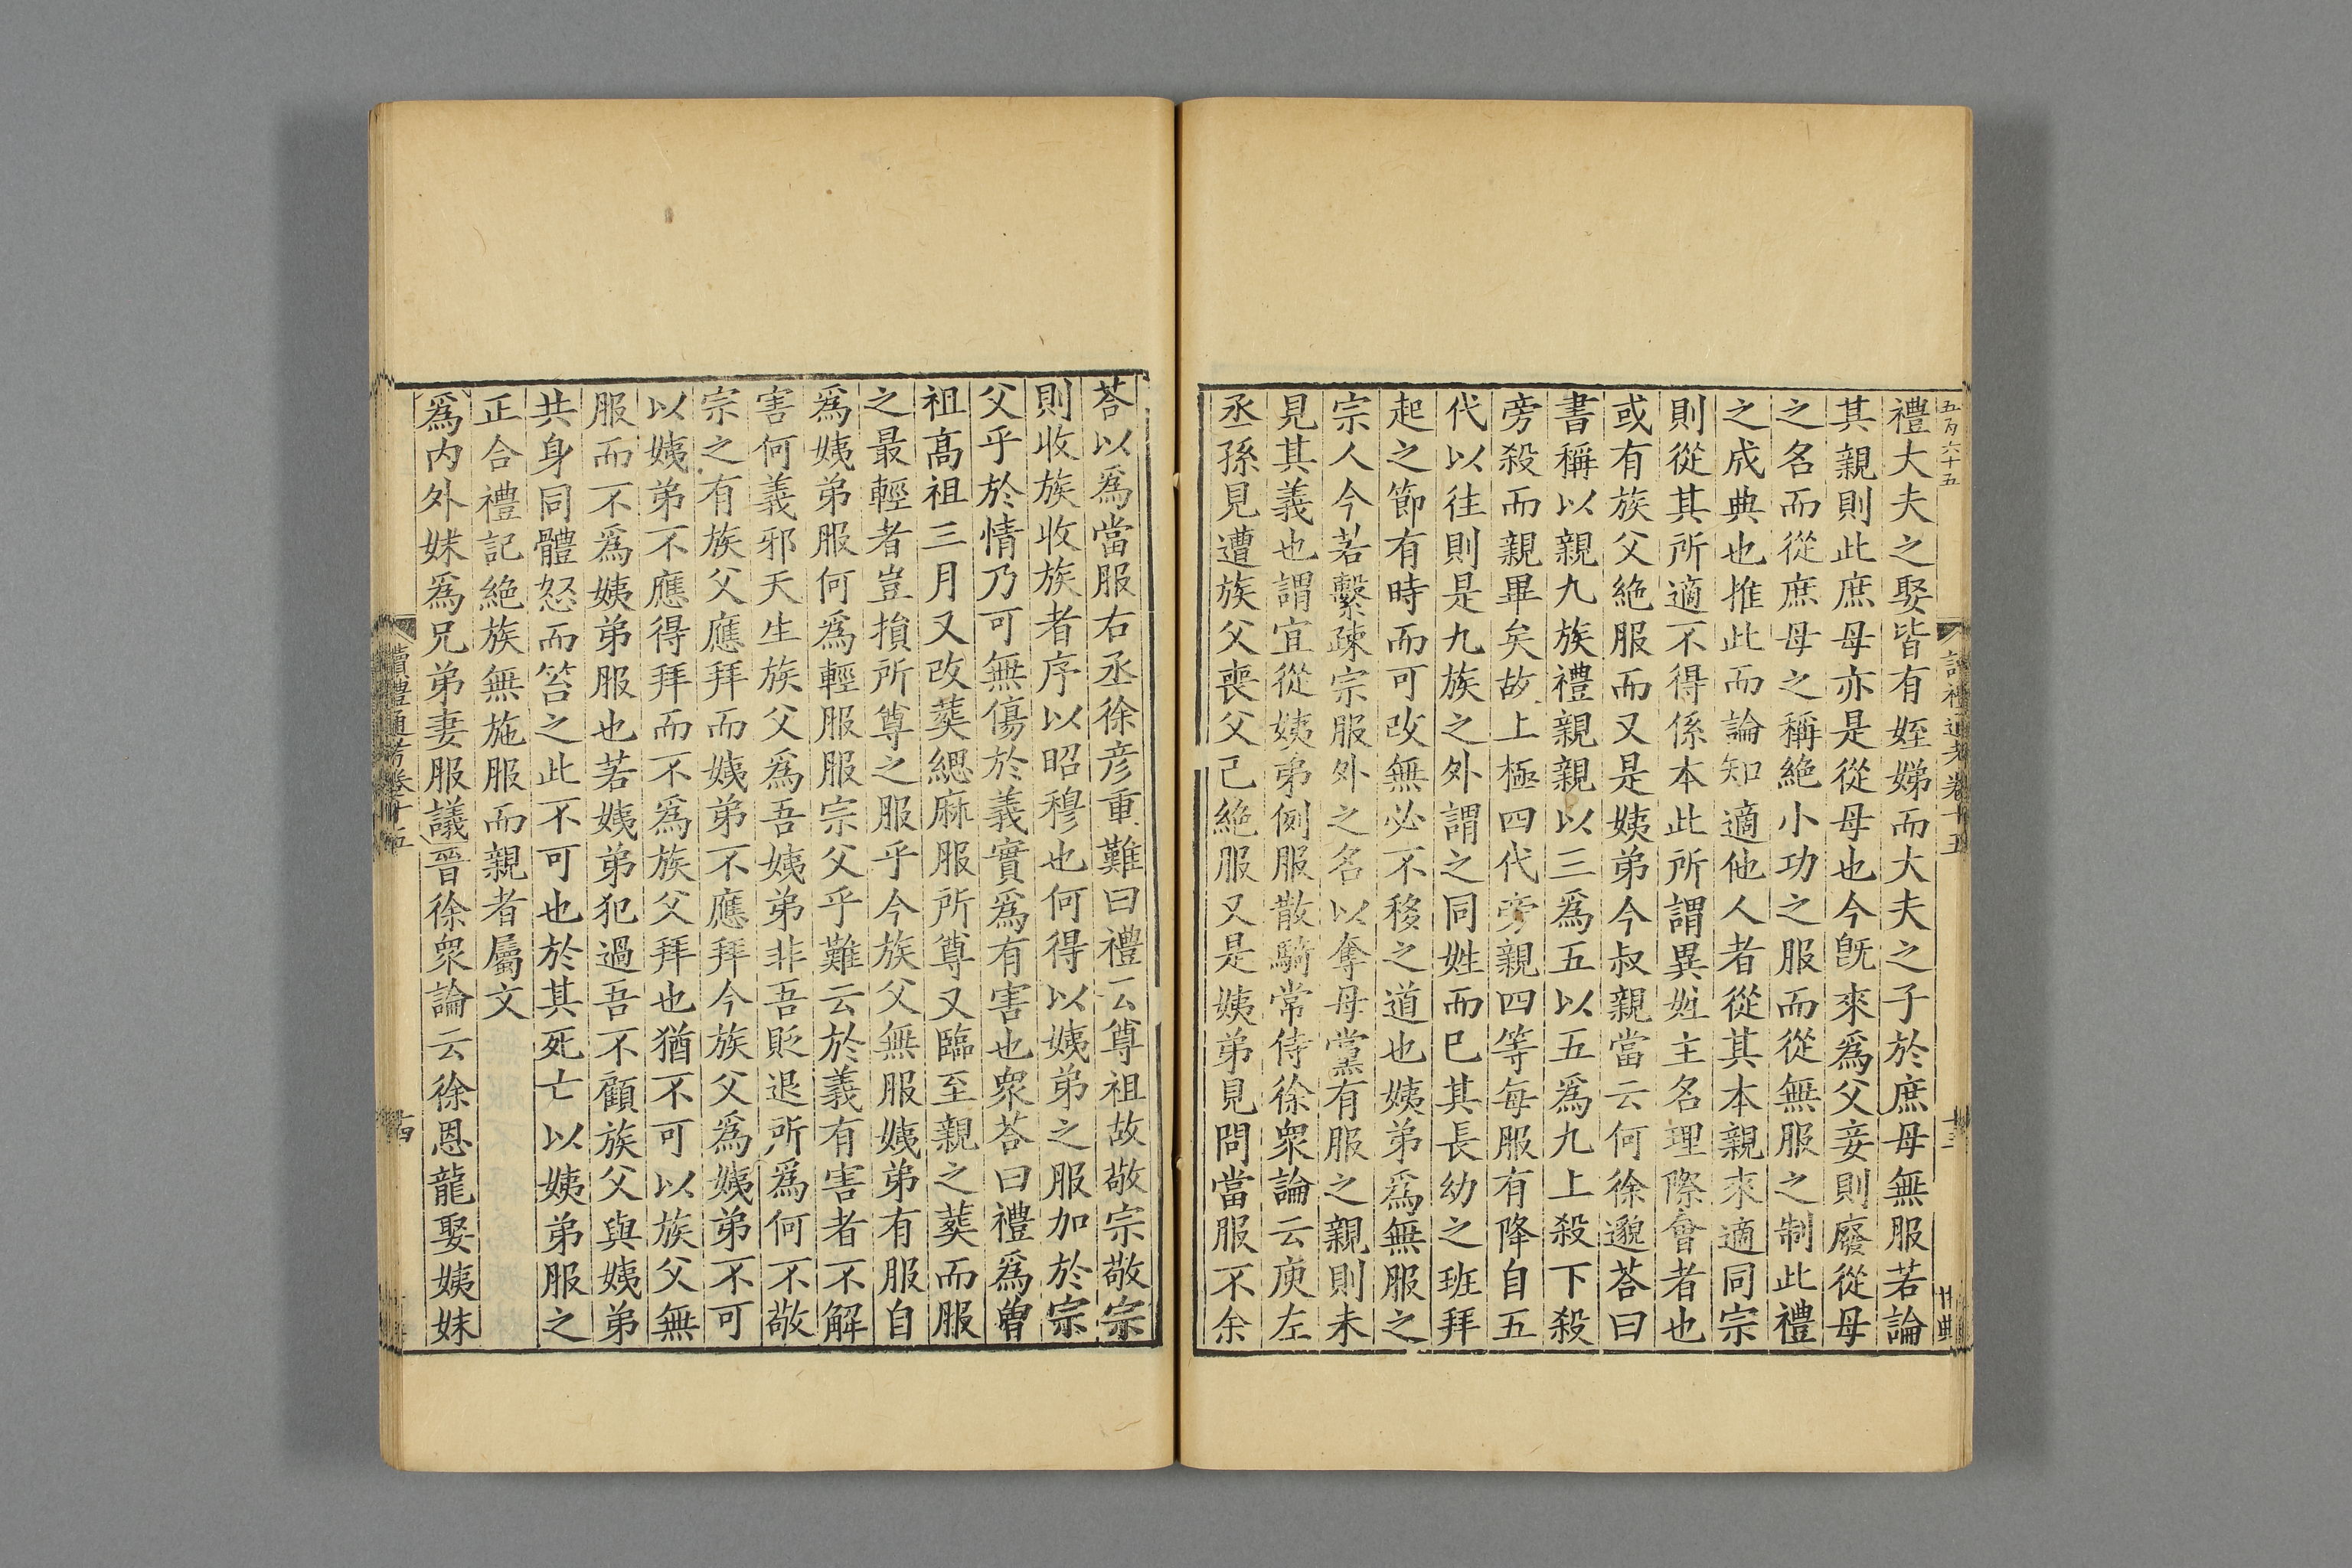 五百六十五
讀禮通考卷十五
禮大夫之娶皆有姪娣而大夫之子於庶母無服若論
其親則此庶母亦是從母也今旣來爲父妾則廢從母
之名而從庶母之稱絶小功之服而從無服之制此禮
之成典也推此而論知適他人者從其本親來適同宗
則從其所適不得係本此所謂異姓主名理際會者也
或有族父絶服而又是姨弟今叔親當云何徐邈荅曰
書稱以親九族禮親親以三爲五以五爲九上殺下殺
旁殺而親畢矣故上極四代旁親四等每服有降自五
代以往則是九族之外謂之同姓而已其長幼之班拜
起之節有時而可改無必不移之道也姨弟爲無服之
宗人今若繫疎宗服外之名以奪母黨有服之親則未
見其義也謂宜從姨弟例服散騎常侍徐衆論云庾左
丞孫見遭族父喪父己絶服又是姨弟見問當服不余
荅以爲當服右丞徐彦重難曰禮云尊祖故敬宗敬宗
則收族收族者序以昭穆也何得以姨弟之服加於宗
父乎於情乃可無傷於義實爲有害也衆荅曰禮爲曾
祖高祖三月又改葬緦麻服所尊又臨至親之葬而服
之最輕者豈損所尊之服乎今族父無服姨弟有服自
爲姨弟服何爲輕服服宗父乎難云於義有害者不解
害何義邪天生族父爲吾姨弟非吾貶退所爲何不敬
宗之有族父應拜而姨弟不應拜今族父爲姨弟不可
以姨弟不應得拜而不爲族父拜也猶不可以族父無
服而不爲姨弟服也若姨弟犯過吾不顧族父與姨弟
共身同體怒而笞之此不可也於其死亡以姨弟服之
正合禮記絶族無施服而親者屬文
爲内外妹爲兄弟妻服議晉徐衆論云徐恩龍娶姨妹
讀禮通考卷十五
十四